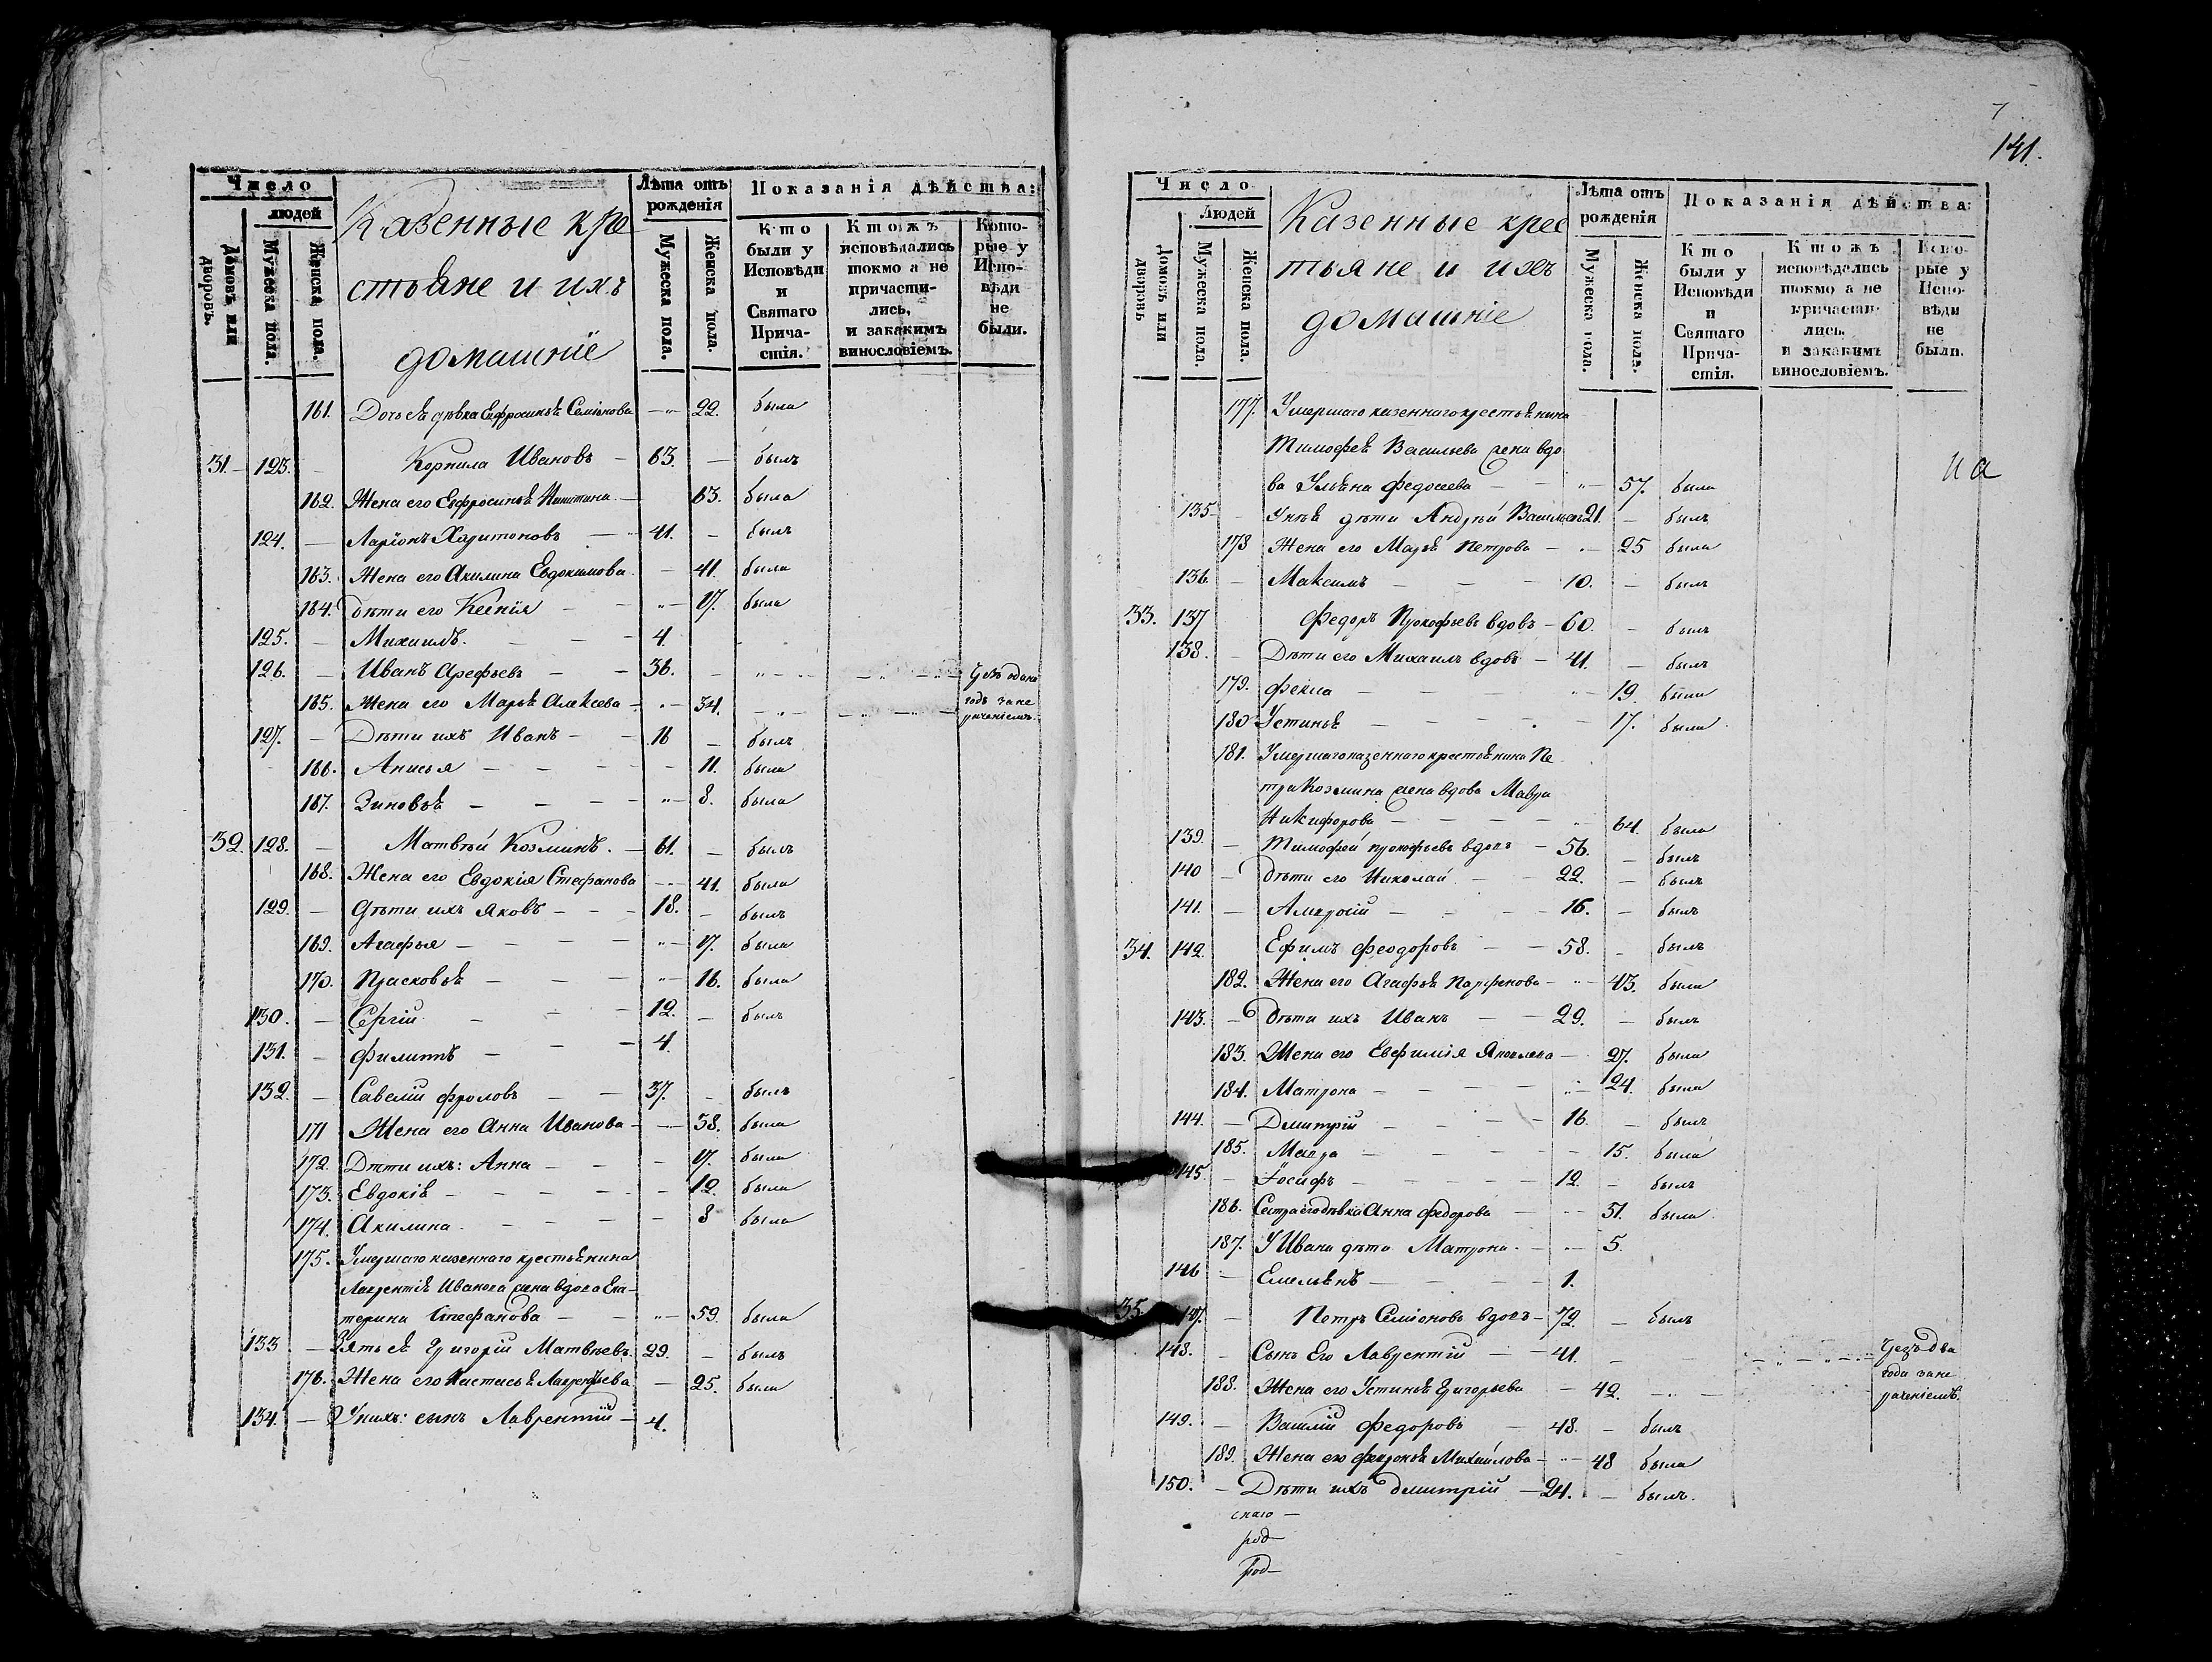 Число
людей
Домовъ или дворовъ.
Мужеска пола.
Женска пола.
Казенные кре
стьѣне и ихъ
домашніе
Лѣта отъ рожденія
Мужеска пола.
Женска пола.
Показанія дѣйства:
Кто были у Исповѣди и Святаго Прича-стія.
Ктожъ исповѣдались токмо а не причасти-лись, и закакимъ винословіемъ.
Кото-рые у Испо-вѣди не были.
161. Дочь еѣ дѣвка Евфросиньѣ Семіонова — 22. была
31. — 123. — Корнила Ивановъ — 63. — былъ
162. Жена его Евфросиньѣ Никитина — 63. была
124. — Ларіонъ Харитоновъ — 41. — былъ
163. Жена его Акилина Евдокимова — 41. была
164. Дѣти его Ксенія — 17. была
125. — Михаилъ — 4.
126. — Иванъ Арефьевъ — 36. — Чрезъ одинъ
165. Жена его Марьѣ Алексева — 34. — годъ за не
раченіемъ.
127. — Дѣти ихъ Иванъ — 16 — былъ
166. Анисья — 11. была
167. Зиновьѣ — 8. была
32. 128. — Матвѣй Козминъ. — 61. — былъ
168. Жена его Евдокія Стефанова — 41. была
129. — Дѣти ихъ Яковъ — 18. — былъ
169. Агафья — 17. была
170. Прасковьѣ — 16. была
130. — Сергій — 12. — былъ
131. — Филиппъ — 4.
132. — Савелій Фроловъ — 37. — былъ
171 Жена его Анна Иванова — 38. была
172. Дѣти ихъ: Анна — 17. была
173. Евдокіѣ — 12. была
174. Акилина — 8 была
175. Умершаго казеннаго крестьѣнина
Лаврентіѣ Иванова жена вдова Ека-
терина Стефанова — 59. была
133 — Зять еѣ Григорій Матвѣевъ. 29. — былъ
176. Жена его Настасьѣ Лаврентьева — 25. была
134. — У нихъ: сынъ Лаврентій — 4.
7
141.
Число
Людей
Домовъ или дворовъ
Мужеска пола.
Женска пола.
Казенные крес
тьяне и ихъ
домашніе
Лѣта отъ рожденія
Мужеска пола.
Женска пола.
Показанія дѣйства:
Кто были у Исповѣди и Святаго Прича-стія.
Ктожъ исповѣдались токмо а не причасти-лись. и закакимъ винословіемъ.
Кото-рые у Испо-вѣди не были.
177. Умершаго казеннаго крестьѣнина
Тимофеѣ Васильева жена вдо
ва Ульѣна Федосеева — 57. была
135 — У неѣ дѣти Андрѣй Васильевъ 21. — былъ
178 Жена его Марьѣ Петрова — 25 была
136. — Максимъ — 10. — былъ
33. 137 Федоръ Прокофьевъ вдовъ — 60. — былъ
138. — Дѣти его Михаилъ вдовъ — 41. — былъ
179. Фекла — 19. была
180 Устиньѣ — 17. была
181. Умершаго казеннаго крестьѣнина Пе
тра Козмина жена вдова Мавра
Никифорова — 64. была
139. — Тимофей Прокофьевъ вдовъ — 56. — былъ
140 — Дѣти его Николай — 22. — былъ
141. — Амвросій — 16. — былъ
34. 142. Ефимъ Феодоровъ — 58. — былъ
182. Жена его Агафьѣ Парфенова — 43. была
143. — Дѣти ихъ Иванъ — 29. — былъ
183. Жена его Евфимія Яковлева — 27. была
184. Матрона — 24. была
144. — Димитрій — 16. — былъ
185. Мавра — 15. была
145. — Іосифъ — 12. — былъ
186. Сестра его дѣвка Анна Федорова — 51. была
187. У Ивана дѣти Матрона. — 5.
146 — Емельѣнъ — 1.
35. 147. — Петръ Семіоновъ вдовъ — 72. — былъ
148. — Сынъ Его Лаврентій — 41. — Чрезъ два
188. Жена его Устиньѣ Григорьева — 42. — года за не
раченіемъ.
149. — Василій Федоровъ — 48. — былъ
189. Жена его Февроньѣ Михайлова — 48 была
150. — Дѣти ихъ Димитрій — 24. — былъ.